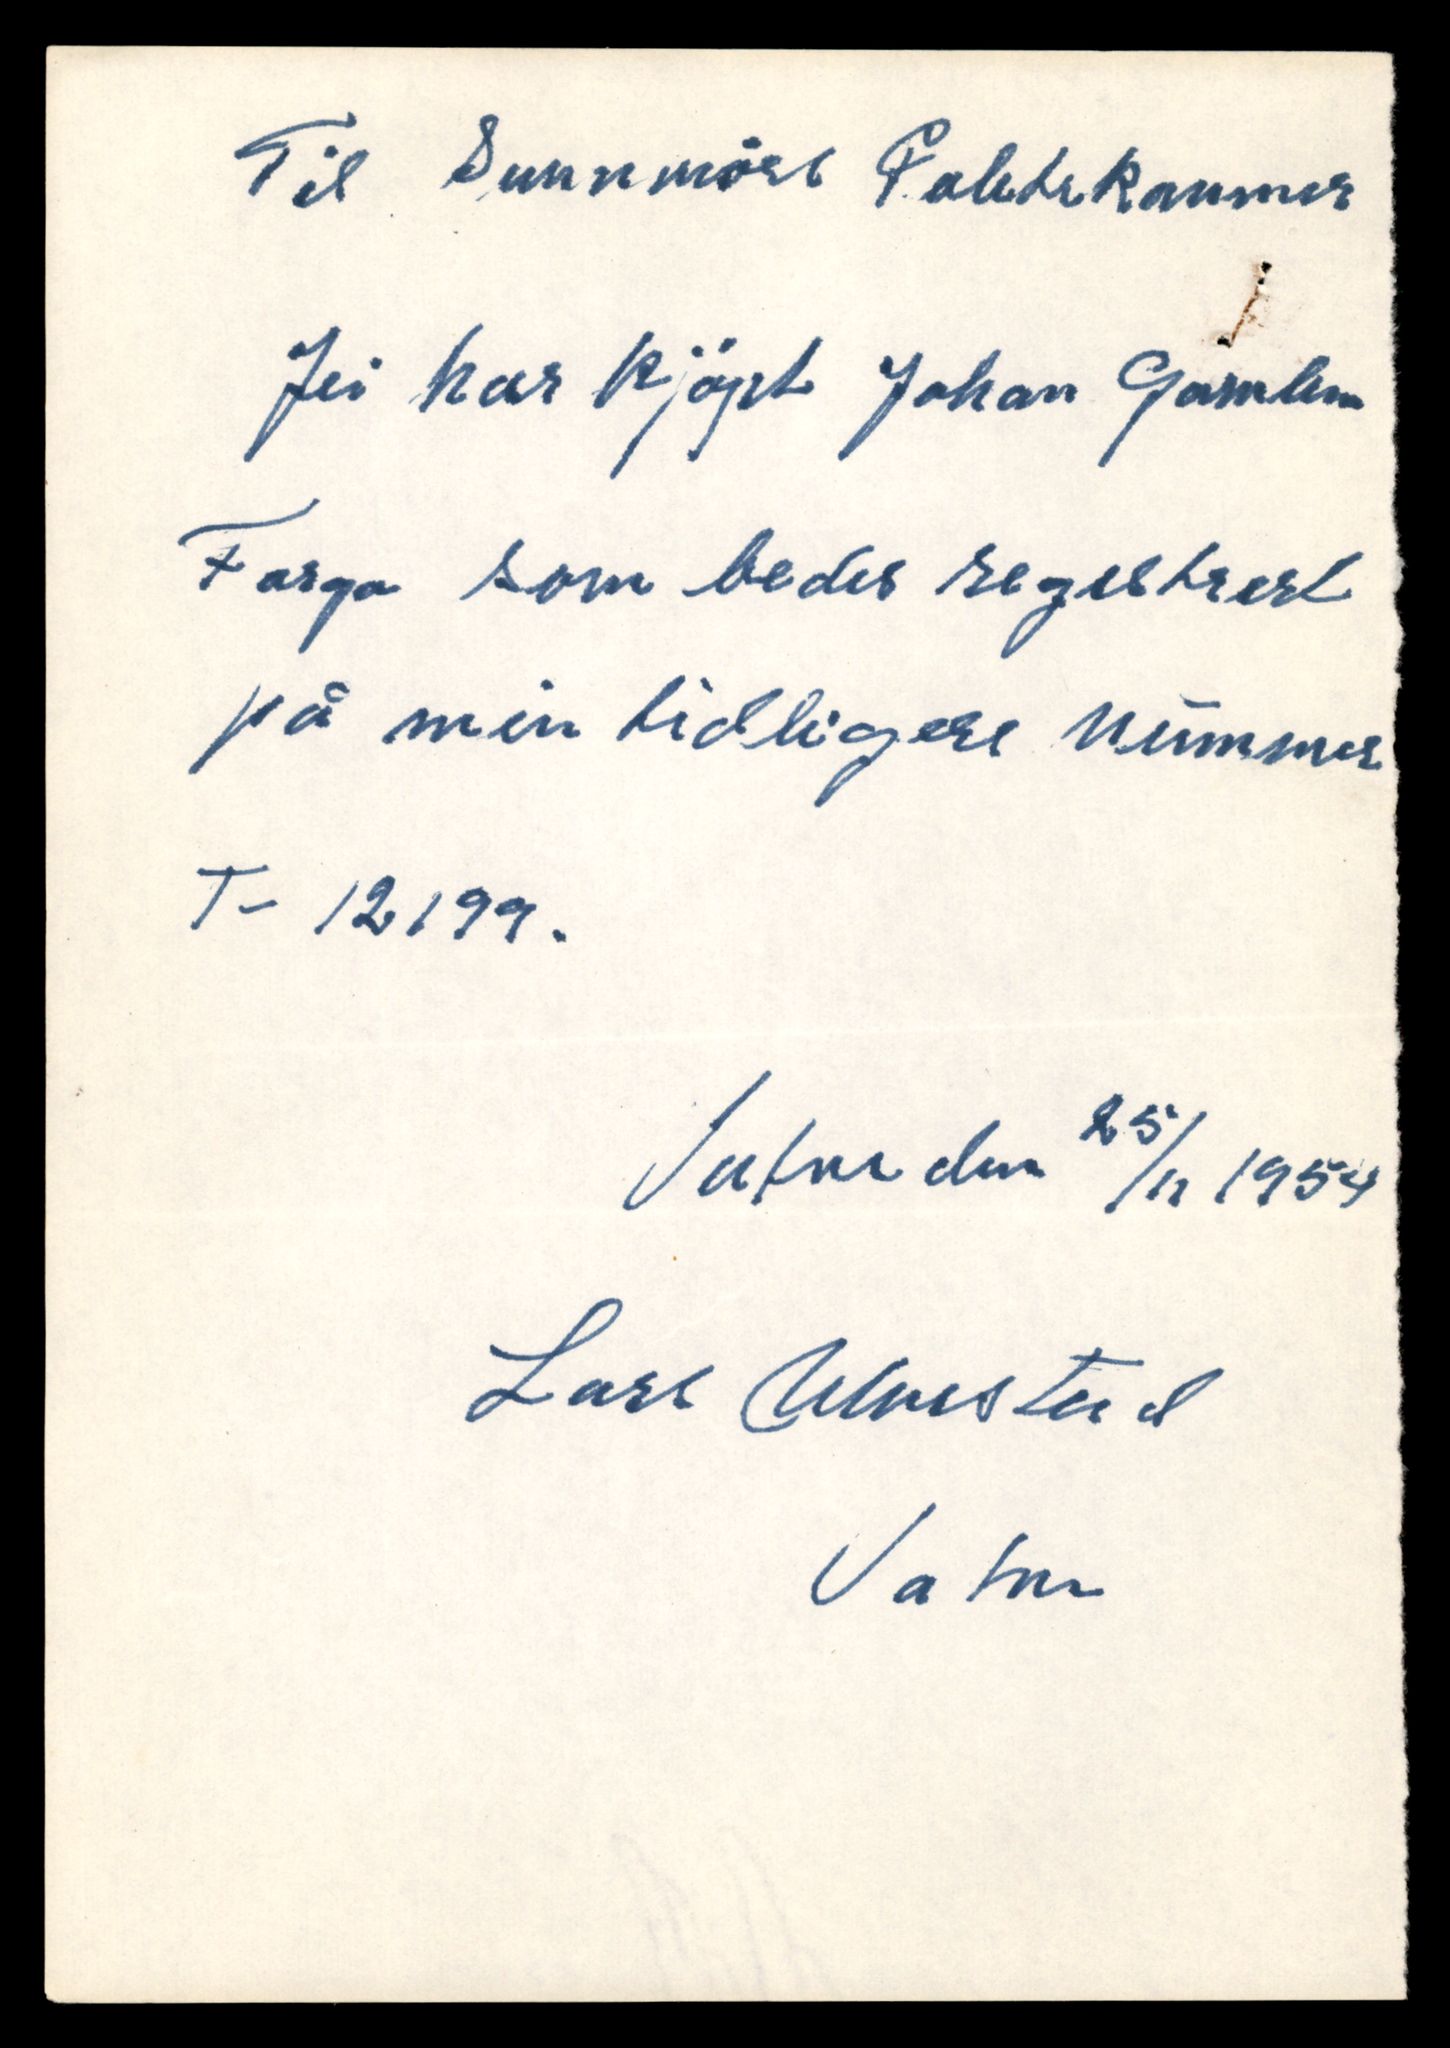 Til Sunnmörs Politikammer
Jei har kjöpt Johan Gamlem
Fargo som bedes registrert
på min tidligere Nummer
T- 12199.
Vatne den 25/11 1954
Lars Ulvestad
Vatne